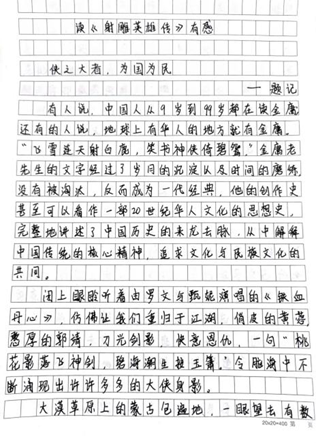 读《射雕英雄传》有感
侠之大者，为国为民
——题记
有人说，中国人从9岁到99岁都在读金庸
还有的人说，地球上有华人的地方就有金庸。
“飞雪连天射白鹿，笑书神侠倚碧鸳。”金庸老
先生的文字经过了岁月的沉淀以及时间的磨练，
没有被淘汰，反而成为一代经典，他的创作史
甚至可以看作一部20世纪华人文化的思想史，
完整地讲述了中国历史的来龙去脉，从中解释
中国传统的核心精神，追求文化与民族文化的
共同。
闭上眼睛听着由罗文与甄妮演唱的《铁血
丹心》，仍佛让我们重归于江湖，俏皮的黄蓉，
憨厚的郭靖，刀光剑影，快意恩仇，一句“桃
花影落飞神剑，碧海潮生按玉箫。”令脑海中不
断涌现出许许多多的大侠身影。
大漠草原上的蒙古包遍地，一眼望去有数
20×20=400 第 页